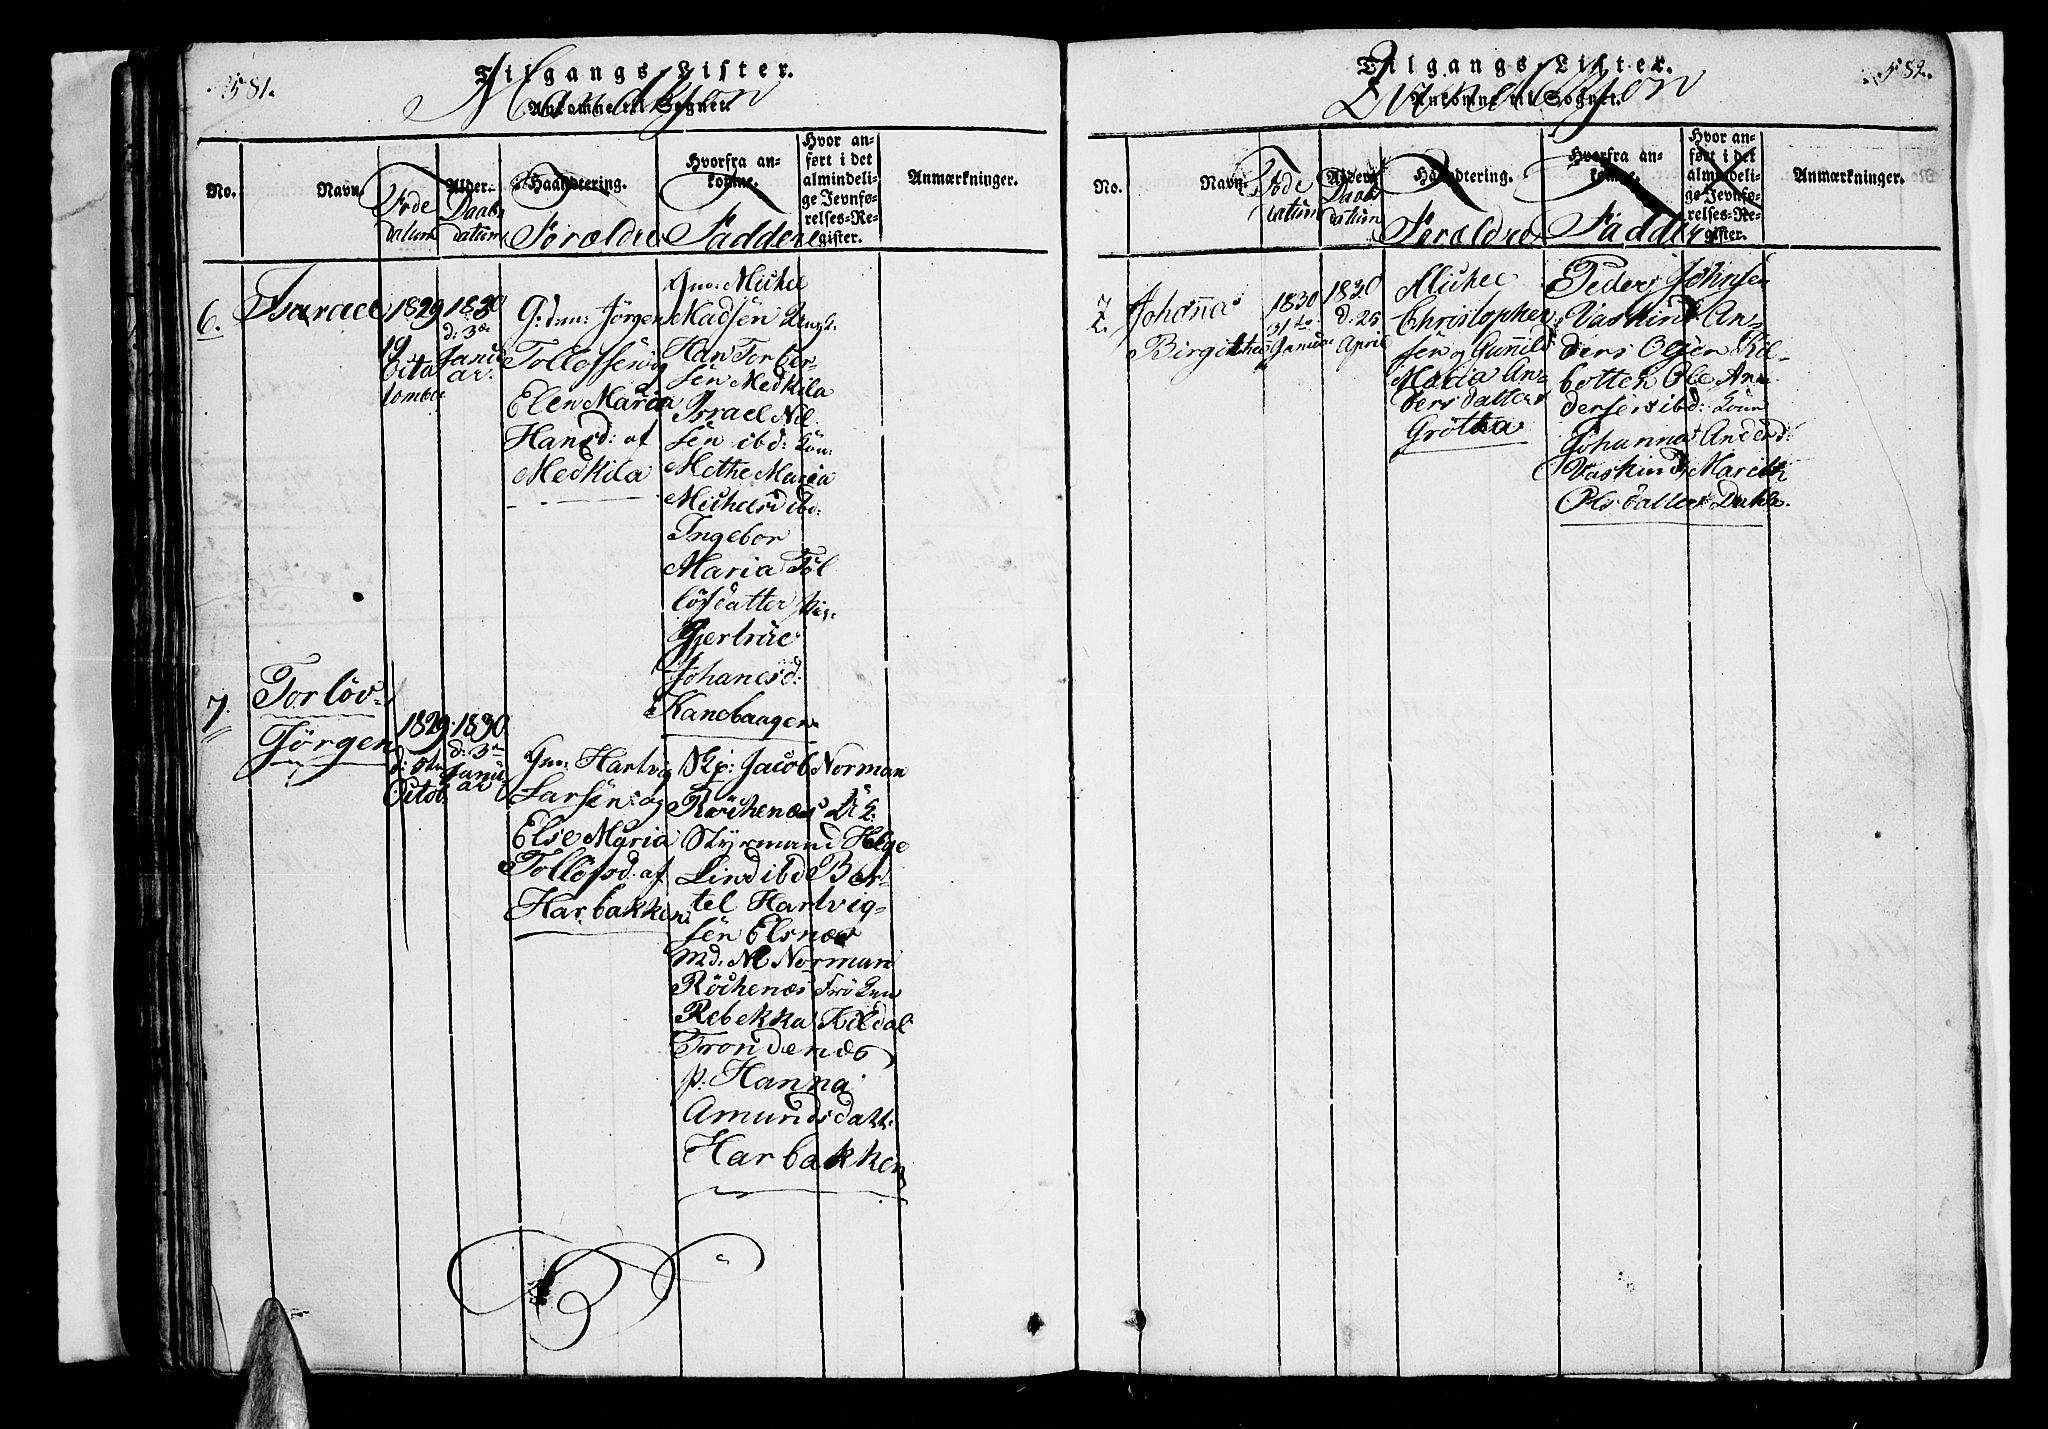 581.
Tilgangs-Lister.
Ankomne til Sognet.
Mandkjøn
No.
Navn.
Føde
datum
Alder.
Daabs
datum
Haandtering.
Forældre
Hvorfra an-
komne.
Faddere
Hvor an-
ført i det
almindeli-
ge Jevnfø-
relses-Re-
gister.
Anmærkninger.
6.
Isarael
1829
19
Octo
tomber
1830
d: 3de
Janu
ar.
G: dm: Jörgen
Tollefsen og
Elen Maria
Hansd: af
Medkila
Gm: Michel
Madsen Ungk:
Han Torber-
sen Medkila
Israel Nil
sen ibd: Kon:
Methe Maria
Michelsd ibd:
Ingebor
Maria Tol
löfsdatter Pig:
Gjertrue
Johanesd:
Kanebaagen
7.
Torlöv
Jörgen
1829
Octob:
1830
d: 3de
Janu
ar
Gm: Hartvig
Larsen og
Else Maria
Tollefsd. af
Harbakken
Skp: Jacob Norman
Röchenæs
Styrmand Helge
Lind ibd Ber-
tel Hartvig-
sen Elsnæs
Md: M Norman
Röchenæs Frökun
Rebekka Kildal
Trondenæs
p: Hanna
Amundsdatt:
Harbakken
582.
Tilgangs-Lister.
Ankomne til Sognet.
Qvindekjøn
No.
Navn.
Føde
datum
Alder.
Daabs
datum
Haandtering.
Forældre
Hvorfra an-
komne.
Faddere
Hvor an-
ført i det
almindeli-
ge Jevnfø-
relses-Re-
gister.
Anmærkninger.
2.
Johanna
Birgithe
1830
31te
Januar
1830
d: 25
April
Michel
Christopher
sen og Gunnild
Maria An-
dersdatter
Grötha
Peder Johnsen
Vaskind An-
ders Olsen Kil
botten Ole An
dersen ibd: Kone
Johanna Andersd:
Vaskind Mareth
Olsdatter Dahle.